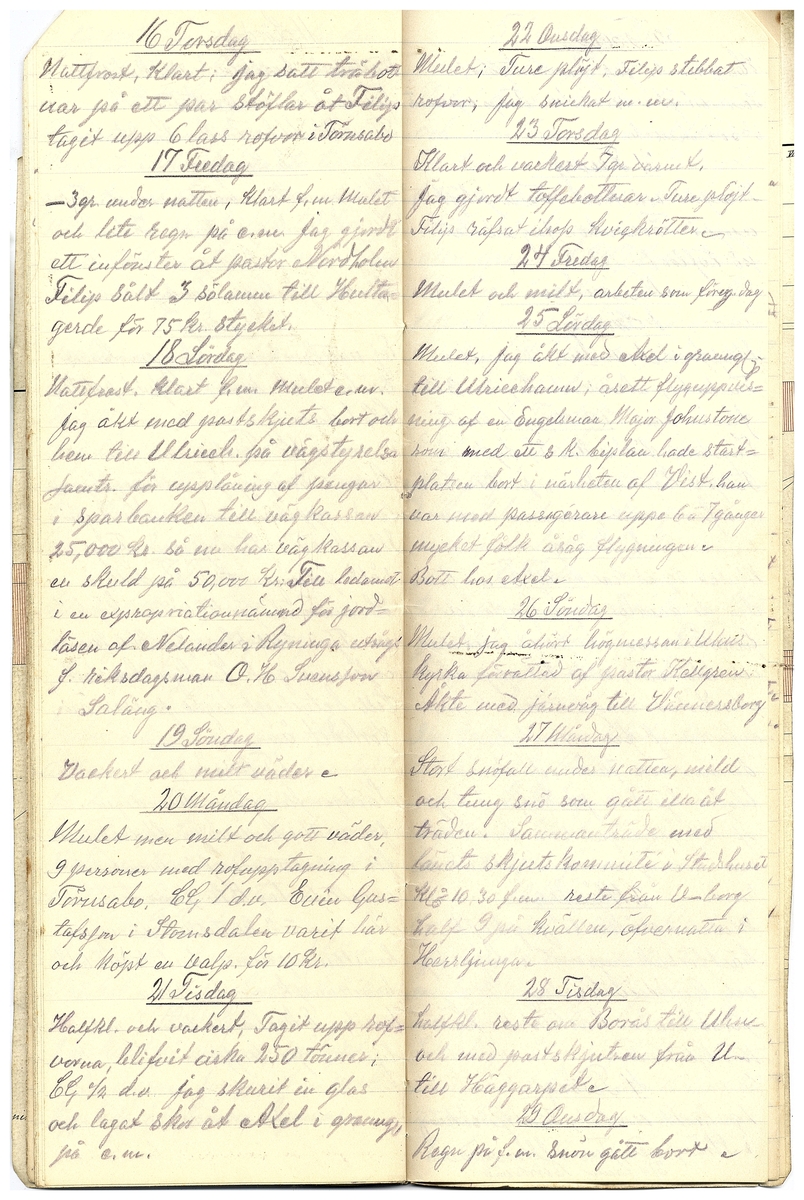 16 Torsdag
Nattfrost, Klart; jag satt träbott
nar på ett par stöflar åt Filip
tagit upp 6 lass rofvor i Törnsabo
17 Fredag
-3gr. under natten, Klart f.m. Mulet
och lite regn på e.m. jag gjordt
ett infönster åt pastor Nordholm
Filip sålt 3 sölamm till Hulta-
gerde för 75 kr. stycket.
18 Lördag
Nattfrost. Klart f.m. Mulet e.m.
jag åkt med postskjuts bort och
hem till Ulriceh. på vägstyrelse
samtr. för upplåning af pengar
i sparbanken till vägkassan
25,000 Kr. så nu har vägkassan
en skuld på 50,000 Kr. Till ledamot
i en expropriationnämnd för jord=
lösen af Nelander i Ryninge utsågs
f. riksdagsman O. H Svensson
Saläng.
19 Söndag
Vackert och milt väder
20 Måndag
Mulet men milt och gott väder,
9 personer med rofupptagning i
Törnsabo. CG 1 d.v. Evin Gus=
tafsson i Stomsdalen varit här
och köpt en valp. för 10 Kr.
21 Tisdag
Halfkl. och vackert, Tagit upp rof=
vorna, blifvit cirka 250 tönner;
CG 1/2 d.v. jag skurit in glas
och lagat skor åt Axel i graung,
på e.m.
22 Onsdag
Mulet; Ture plöjt, Filip stibbat
rofvor, jag snickat m.m.
23 Torsdag
Klart och vackert 7gr värmt.
jag gjordt toffelbottnar. Ture plöjt
Filip räfsat ihop kvigkrötter
24 Fredag
Mulet och milt, arbeten som föreg. dag
25 Lördag
Mulet, jag åkt med Axel i graung
till Ulricehamn; åsett flyguppvis=
ning af en Engelsman Major Johnstone
som med ett s k. biplan hade start=
platsen bort i närheten af Vist. han
var med passagerare uppe 6 a 7 gånger
mycket folk åsåg flygningen
Bott hos Axel
26 Söndag
Mulet, jag åhört högmessan i Ulric
kyrka förrättad af pastor Hallgren.
Åkte med järnväg till Vännersborg
27 Måndag
Stort snöfall under natten, mild
och tung snö som gått illa åt
träden. Sammanträde med
länets skjutskommité i Stadshuset
Kl. 10,30 f.m. reste från V-borg
half 9 på kvällen, öfvernatta i
Herrljunga
28 Tisdag
halfkl. reste om Borås till Ulric
och med postskjutsen från U-
till Häggarpet
29 Onsdag
Regn på f.m. snön gått bort